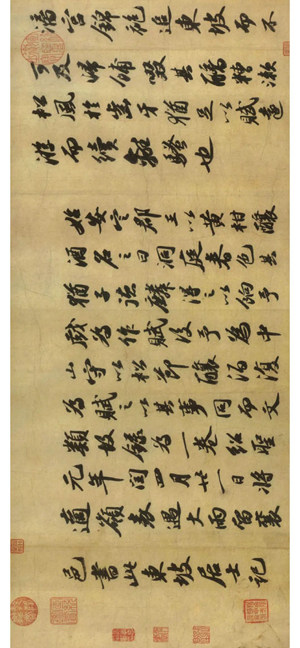 漓宮錦袍追東坡而不
可及歸餔歠其醨糟漱
松風於齒牙猶足以賦遠
游而續離騷也
始安定郡王以黃柑釀
酒名之曰洞庭春色其
猶子德麟得之以餉予
戲為作賦後予為中
山守以松節釀酒復
為賦之以其事同而文
類故錄為一卷紹聖
元年閏四月廿一日將
適嶺表遇大雨留襄
邑書此東坡居士記